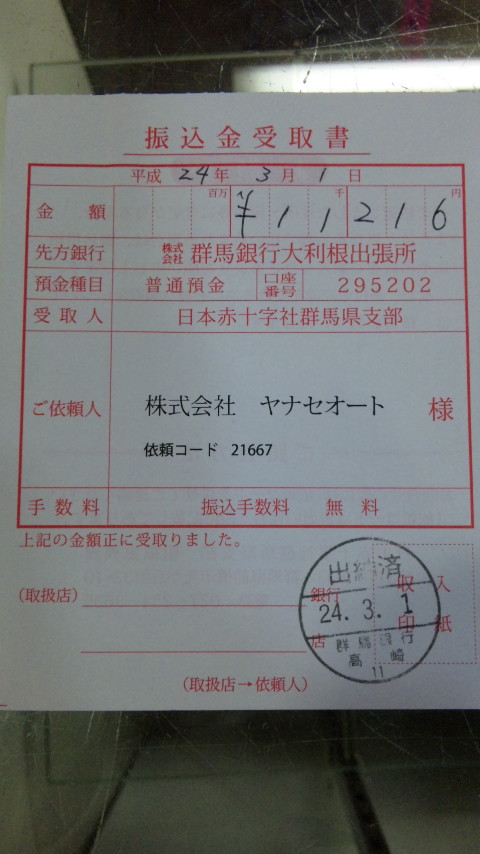 振込金受取書
平成 24年 3月 1日
百万 千 円
金額 ¥11216
先方銀行 株式会社 群馬銀行大利根出張所
預金種目 普通預金 口座番号 295202
受取人 日本赤十字社群馬県支部
ご依頼人 株式会社 ヤナセオート 様
依頼コード 21667
手数料 振込手数料 無料
上記の金額正に受取りました。
(取扱店) 銀行
店
収入
印紙
出納済
24.3.1
群馬銀行
高崎
11
(取扱店→依頼人)